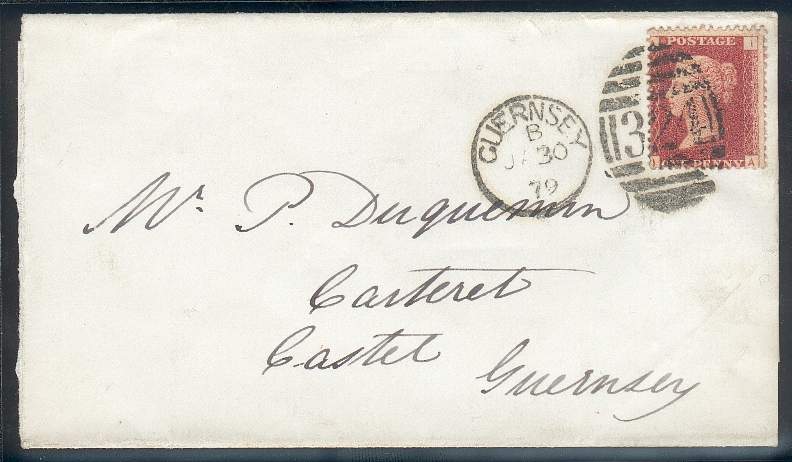 POSTAGE
I
GUERNSEY
B
JA 30
79
324
PENNY
A
Mr. P. Duquemin
Carteret
Castel
Guernsey